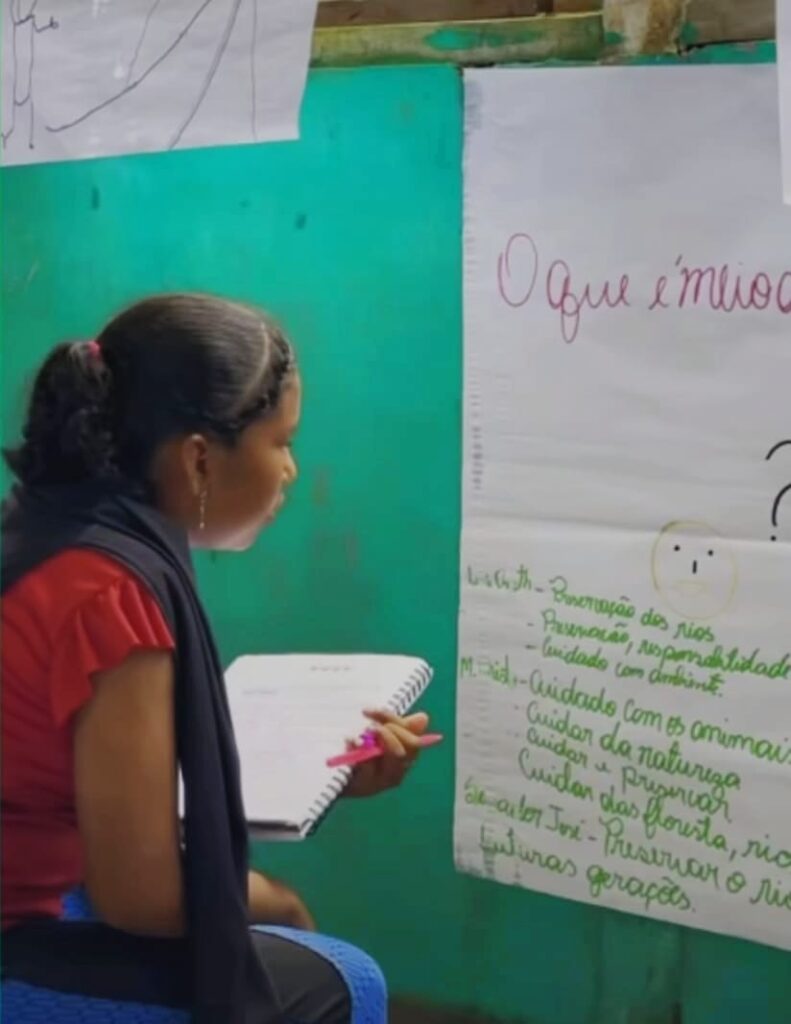 O que é meio a
?
?
- Preservação dos rios
- Preservação, responsabilidade
- Cuidado com ambiente.
M. - Cuidado com os animais
- Cuidar da natureza
- Cuidar e preservar
Cuidar das floresta, rio
José - Preservar o rio
futuras gerações.